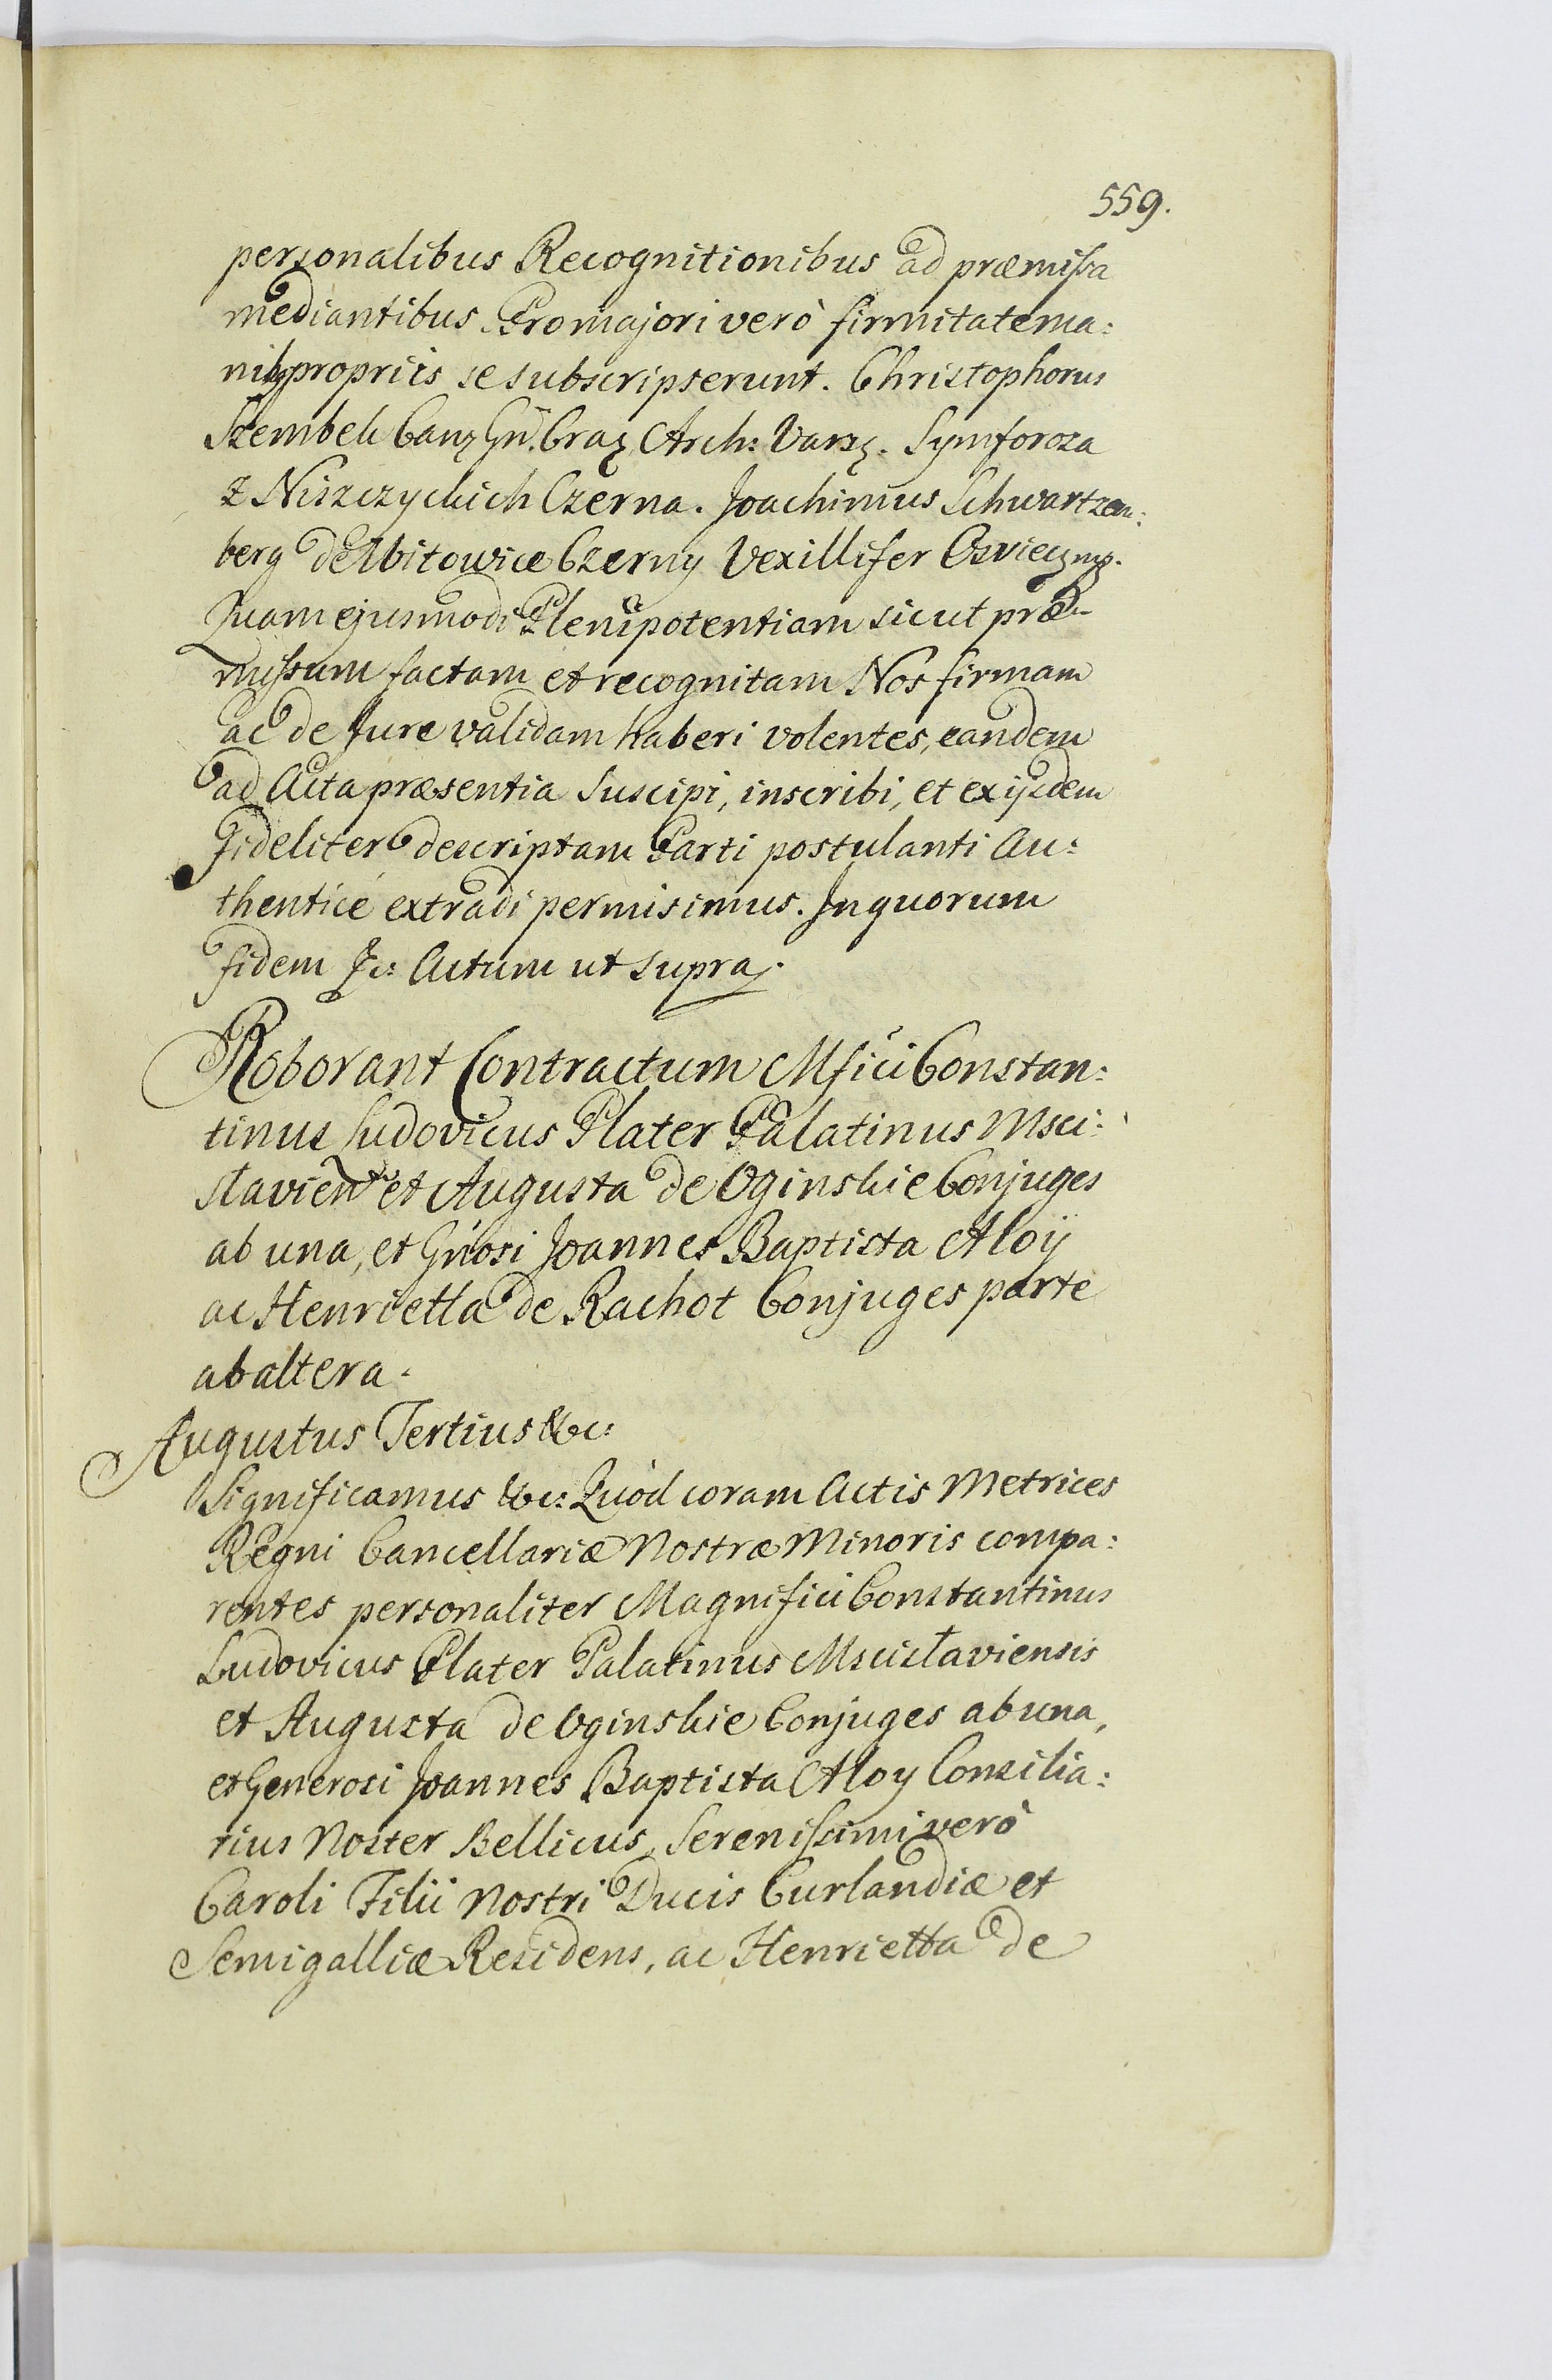 559.
personalibus Recognitionibus ad præmissa
mediantibus. Pro majori verò firmitate ma:
nibq propriis se subscripserunt. Christophorus
Szembek Canz Gn. Craz Arch: Varsz. Symforoza
z Niszczyckich Czerna. Joachimus Schwartzen:
berg de Witowice Czerny Vexillifer
Quam ejusmodi Plenipotentiam sicut præ-
missum factam et recognitam Nos firmam
ac de Jure validam haberi volentes, eandem
ad Acta præsentia suscipi, inscribi, et ex ijsdem
Fideliter descriptam Parti postulanti Au:
thenticé extradi permisimus. In quorum
fidem &c: Actum ut supra.
Roborant Contractum Mfici Constan:
tinus Ludovicus Plater Palatinus Msci:
slavien et Augusta de Oginskie Conjuges
ab una, et Gñosi Joannes Baptista Aloÿ
ac Henrietta de Rachot Conjuges parte
ab altera.
Augustus Tertius &c:
Significamus &c: Quòd coram Actis Metrices
Regni Cancellariæ Nostræ Minoris compa:
rentes personaliter Magnifici Constantinus
Ludovicus Plater Palatinus Mscisłaviensis
et Augusta de Oginskie Conjuges ab una,
et Generosi Joannes Baptista Aloy Consilia:
rius Noster Bellicus, Serenissimi verò
Caroli Filii Nostri Ducis Curlandiæ et
Semigalliæ Residens, ac Henrietta de